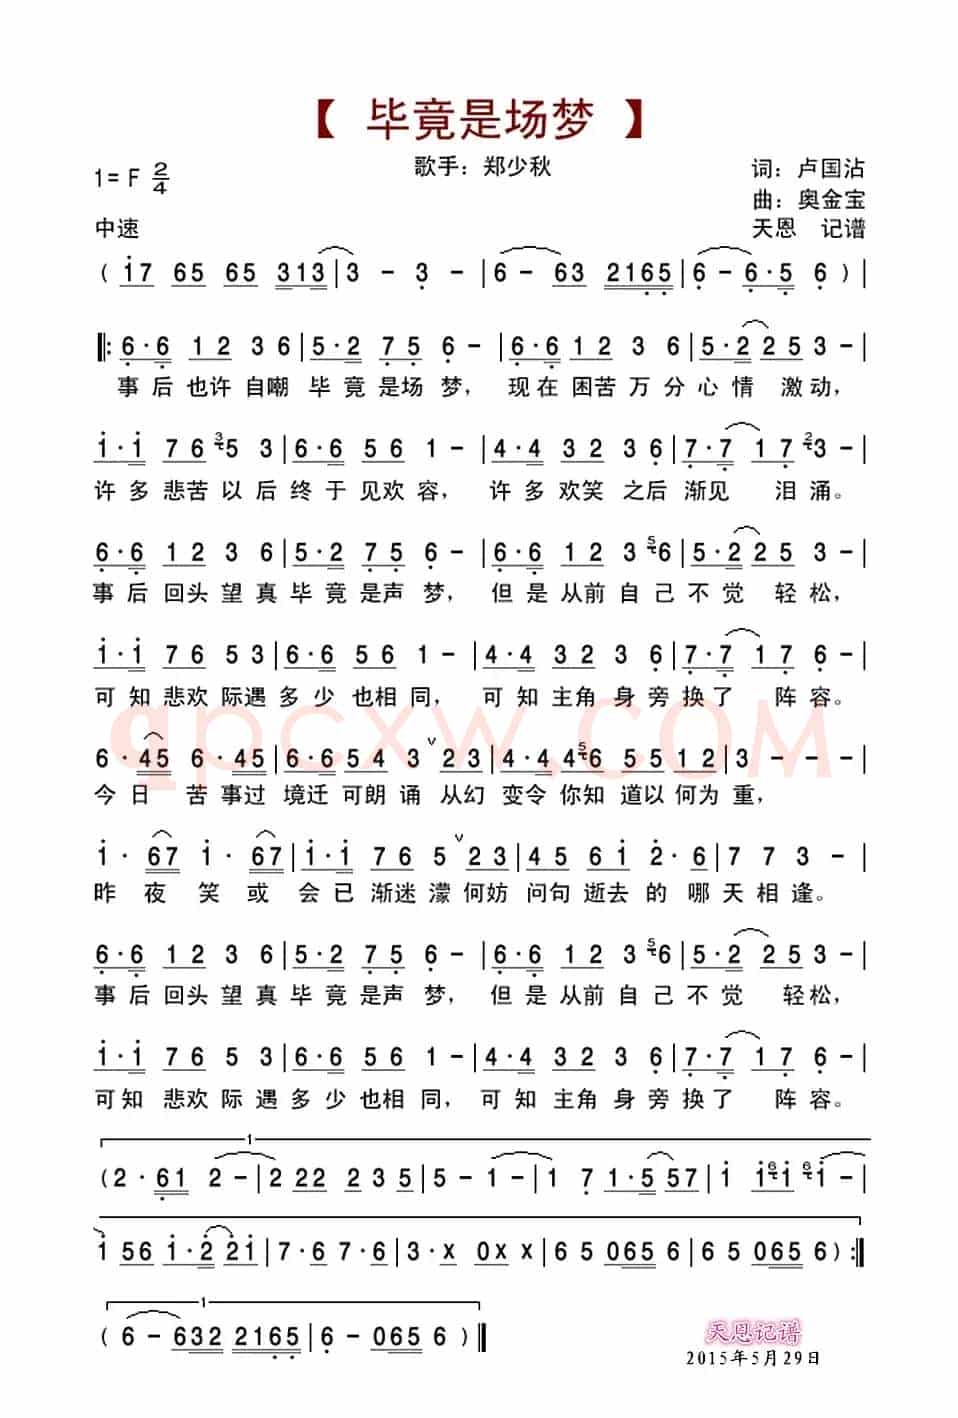 【 毕竟是场梦 】
歌手：郑少秋
1= F 2/4
词：卢国沾
曲：奥金宝
中速
天恩 记谱
( i7 65 65 313 | 3 - 3 - | 6 - 63 2165 | 6 - 6·5 6 ) |
‖: 6·6 12 36 | 5·2 75 6 - | 6·6 12 3 6 | 5·2 25 3 - |
事后也许自嘲毕竟是场梦，现在困苦万分心情激动，
i·i 76 35 3 | 6·6 56 1 - | 4·4 32 3 6 | 7·7 17 23 - |
许多悲苦以后终于见欢容，许多欢笑之后渐见 泪涌。
6·6 12 3 6 | 5·2 75 6 - | 6·6 12 3 56 | 5·2 25 3 - |
事后回头望真毕竟是声梦，但是从前自己不觉 轻松，
i·i 76 53 | 6·6 56 1 - | 4·4 32 3 6 | 7·7 17 6 - |
可知悲欢际遇多少也相同，可知主角身旁换了 阵容。
qpcxw.com
6·45 6·45 | 6·65 54 3 ∨ 23 | 4·4 456 55 12 | 3 - - - |
今日 苦事过境迁可朗诵 从幻变令你知道以何为重，
i· 67 i· 67 | i·i 76 5 ∨ 23 | 45 6i 2·6 | 7 7 3 - |
昨夜笑或会已渐迷濛何妨问句逝去的哪天相逢。
6·6 12 3 6 | 5·2 75 6 - | 6·6 12 3 56 | 5·2 25 3 - |
事后回头望真毕竟是声梦，但是从前自己不觉 轻松，
i·i 76 5 3 | 6·6 56 1 - | 4·4 32 3 6 | 7·7 17 6 - |
可知悲欢际遇多少也相同，可知主角身旁换了 阵容。
1
(2·61 2 - | 2 22 235 | 5 - 1 - | 1 7 1·5 57 | i i6i 6i - |
i 56 i·2 2i | 7·6 7·6 | 3·x 0x x | 6 5 065 6 | 6 5 065 6 ) :‖
1
( 6 - 632 2165 | 6 - 065 6 ) ‖
天恩记谱
2015年5月29日